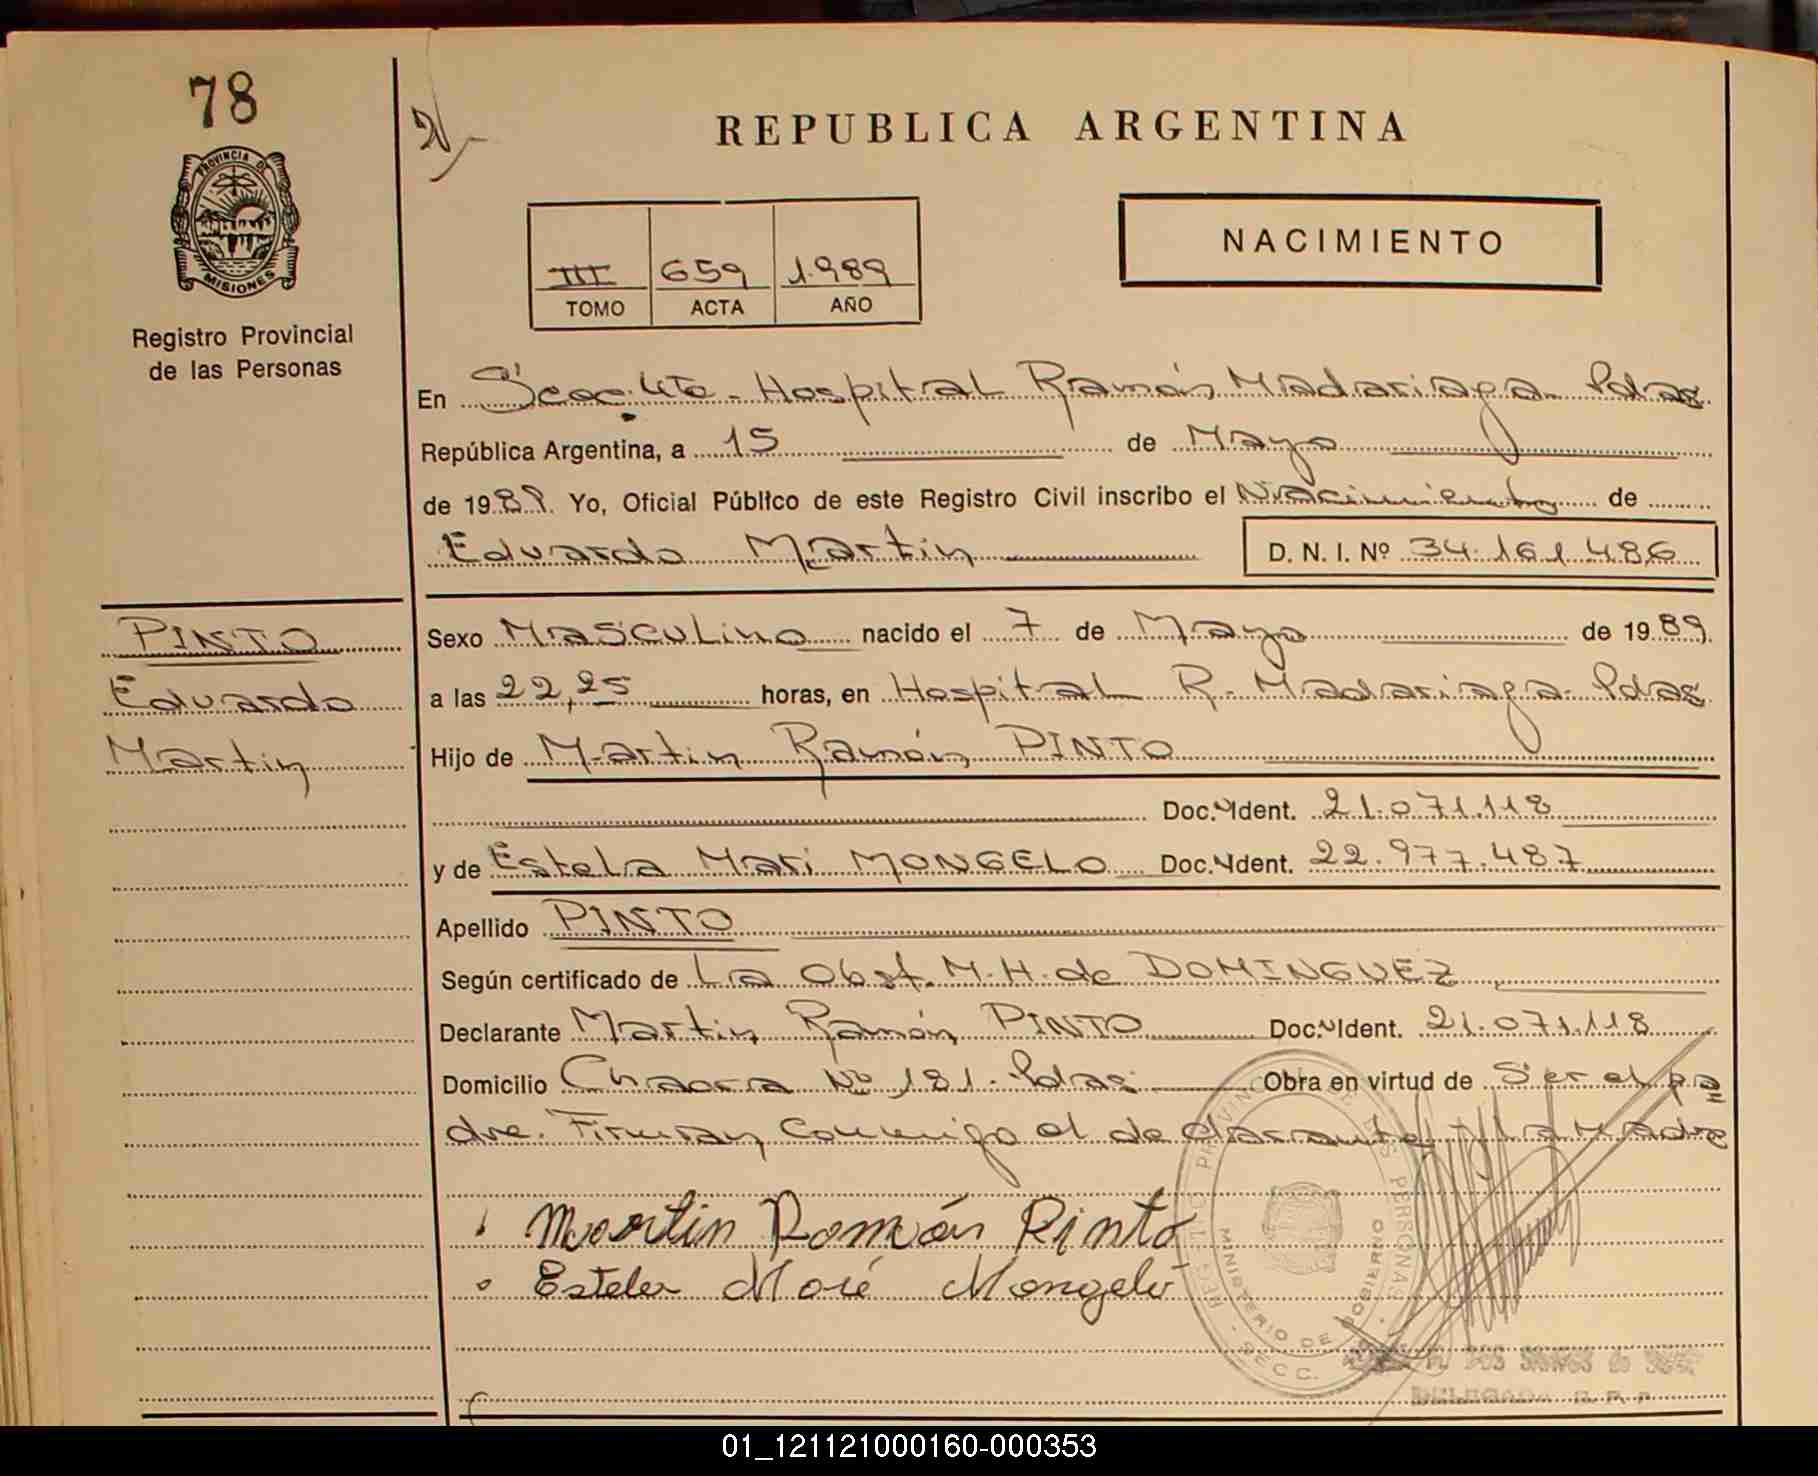 78
2/-
REPUBLICA ARGENTINA
PROVINCIA DE
MISIONES
Registro Provincial
de las Personas
NACIMIENTO
III 659 1.989
TOMO ACTA AÑO
En Secc. 4ta. Hospital Ramón Madariaga. Pdas.
República Argentina, a 15 de Mayo
de 1989. Yo, Oficial Público de este Registro Civil inscribo el Nacimiento de
Eduardo Martin D. N. I. Nº 34.161.486
PINTO
Eduardo
Martin
Sexo Masculino nacido el 7 de Mayo de 1989.
a las 22,25 horas, en Hospital R. Madariaga. Pdas.
Hijo de Martin Ramón PINTO
Doc. Ident. 21.071.118
y de Estela Mari MONGELO Doc. Ident. 22.977.487
Apellido PINTO
Según certificado de La Obst. M.H. de DOMINGUEZ
Declarante Martin Ramón PINTO Doc. Ident. 21.071.118
Domicilio Chacra Nº 181. Pdas. Obra en virtud de Ser el pa=
dre. Firman conmigo el declarante y la Madre
Martin Ramón Pinto
Estela Mari Mongeló
MINISTERIO DE GOBIERNO
SECC.
DELEGADA R.P.P.
01_121121000160-000353